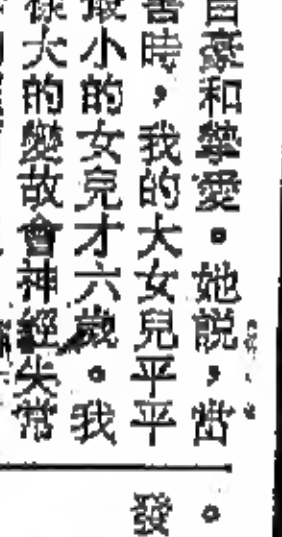 自豪和摯愛。她說，當
書時，我的大女兒平平
最小的女兒才六歲。我
樣大的變故會神經失常
。
發